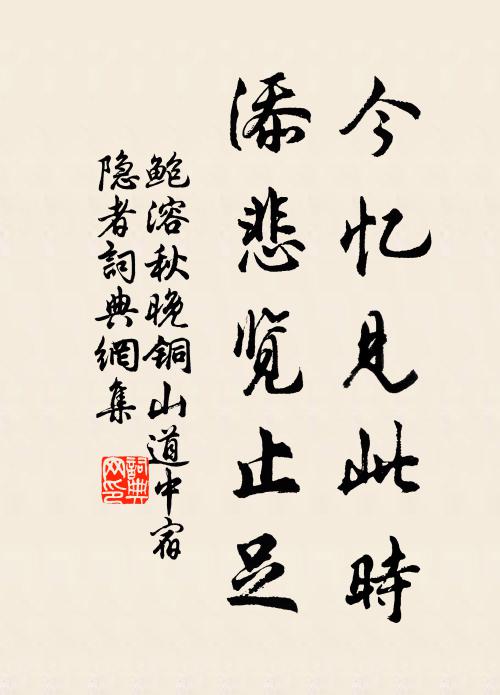 今忆见此時
添悲览止足
鲍溶秋晚銅山道中宿
隐者詞典網集
詞典
网印